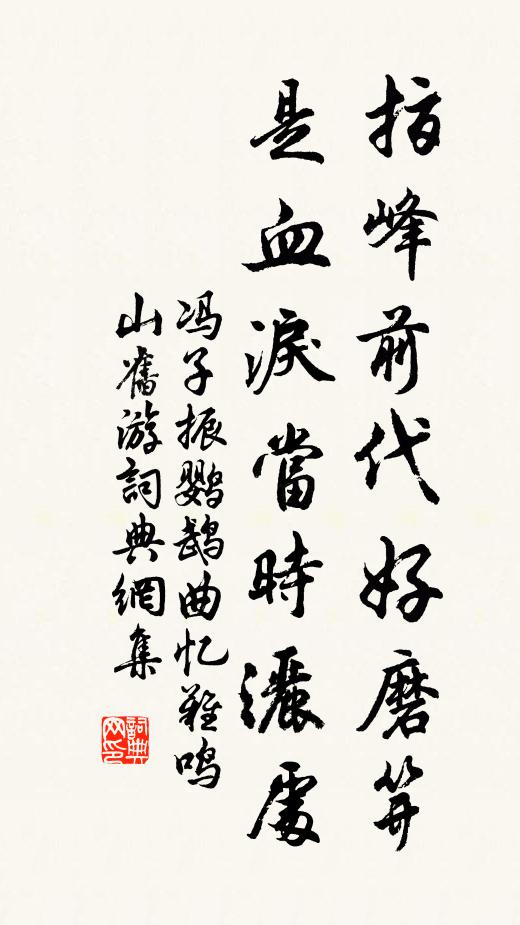 指峰前代好磨笄
是血淚當時灑處
冯子振鹦鹉曲忆雞鸣
山舊游詞典網集
詞典
网印